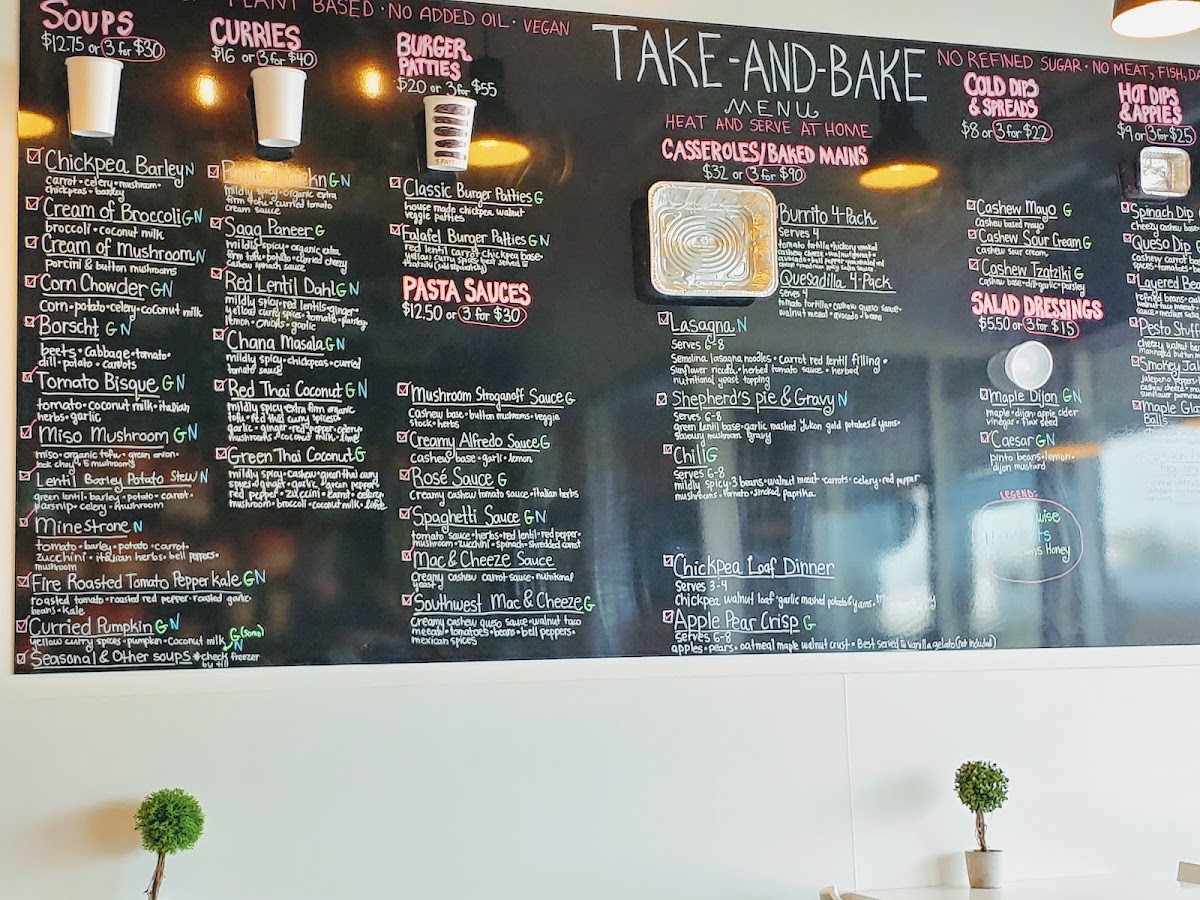 PLANT BASED · NO ADDED OIL · VEGAN
SOUPS
$12.75 or 3 for $30
Chickpea Barley N
carrot · celery · mushroom ·
chickpeas · barley
Cream of Broccoli G N
broccoli · coconut milk
Cream of Mushroom N
porcini & button mushrooms
Corn Chowder G N
corn · potato · celery · coconut milk
Borscht G N
beets · cabbage · tomato ·
dill · potato · carrots
Tomato Bisque G N
tomato · coconut milk · italian
herbs · garlic
Miso Mushroom G N
miso · organic tofu · green onion ·
bok choy · 5 mushrooms
Lentil Barley Potato Stew N
green lentil · barley · potato · carrot ·
parsnip · celery · mushroom
Minestrone N
tomato · barley · potato · carrot ·
zucchini · italian herbs · bell peppers ·
mushroom
Fire Roasted Tomato Pepper Kale G N
roasted tomato · roasted red pepper · roasted garlic ·
beans · kale
Curried Pumpkin G N
yellow curry spices · pumpkin · coconut milk
Seasonal & Other soups *check freezer
by till
CURRIES
$16 or 3 for $40
G N
mildly spicy · organic extra
firm tofu · curried tomato
cream sauce
Saag Paneer G
mildly spicy · organic extra
firm tofu · potato · curried cheezy
cashew spinach sauce
Red Lentil Dahl G N
mildly spicy · red lentils · ginger ·
yellow curry spices · tomato · parsley ·
lemon · onions · garlic
Chana Masala G N
mildly spicy · chickpeas · curried
tomato sauce
Red Thai Coconut G N
mildly spicy · extra firm organic
tofu · red thai curry spices ·
garlic · ginger · red pepper · celery ·
mushrooms · coconut milk · lime
Green Thai Coconut G
mildly spicy · cashew · green thai curry
spices · ginger · garlic · green pepper ·
red pepper · zuccini · carrot · celery ·
mushroom · broccoli · coconut milk · lime
BURGER
PATTIES
$20 or 3 for $55
5 PATTIES
Classic Burger Patties G
house made chickpea walnut
veggie patties
Falafel Burger Patties G N
red lentil carrot chickpea base ·
yellow curry spices · best served w
tzatziki (sold separately)
PASTA SAUCES
$12.50 or 3 for $30
Mushroom Stroganoff Sauce G
cashew base · button mushrooms · veggie
stock · herbs
Creamy Alfredo Sauce G
cashew base · garlic · lemon
Rosé Sauce G
creamy cashew tomato sauce · italian herbs
Spaghetti Sauce G N
tomato sauce · herbs · red lentil · red pepper ·
mushroom · zucchini · spinach · shredded carrot
Mac & Cheeze Sauce
creamy cashew carrot sauce · nutritional
yeast
Southwest Mac & Cheeze G
creamy cashew queso sauce · walnut taco
meeat · tomatoes · beans · bell peppers ·
mexican spices
TAKE-AND-BAKE
MENU
HEAT AND SERVE AT HOME
CASSEROLES/BAKED MAINS
$32 or 3 for $90
Burrito 4-Pack
Serves 4
Quesadilla 4-Pack
Serves 4
tomato tortilla · cashew queso sauce ·
walnut meeat · avocado · beans
Lasagna N
Serves 6-8
Semolina lasagna noodles · carrot red lentil filling ·
Sunflower ricotta · herbed tomato sauce · herbed
nutritional yeast topping
Shepherd's Pie & Gravy N
Serves 6-8
green lentil base · garlic mashed Yukon gold potatoes & yams ·
savoury mushroom gravy
Chili G
Serves 6-8
mildly spicy · 3 beans · walnut meeat · carrots · celery · red pepper
mushrooms · tomato · smoked paprika
Chickpea Loaf Dinner
Serves 3-4
Chickpea walnut loaf · garlic mashed potato & yams ·
Apple Pear Crisp G
Serves 6-8
apples · pears · oatmeal maple walnut crust · Best served w vanilla gelato (not included)
NO REFINED SUGAR · NO MEAT, FISH, DA
COLD DIPS
& SPREADS
$8 or 3 for $22
Cashew Mayo G
cashew based mayo
Cashew Sour Cream G
cashew sour cream
Cashew Tzatziki G
cashew base · dill · garlic · parsley
SALAD DRESSINGS
$5.50 or 3 for $15
Maple Dijon G N
maple · dijon · apple cider
vinegar · flax seed
Caesar G N
pinto beans · lemon ·
dijon mustard
LEGEND:
Honey
HOT DIPS
& APPIES
$9 or 3 for $25
Spinach Dip
cheezy cashew base
Queso Dip
cashew carrot
spices · tomatoes
Layered Bea
refried beans
Pesto Stuff
Smokey Jal
jalapeno peppers
Maple
Balls